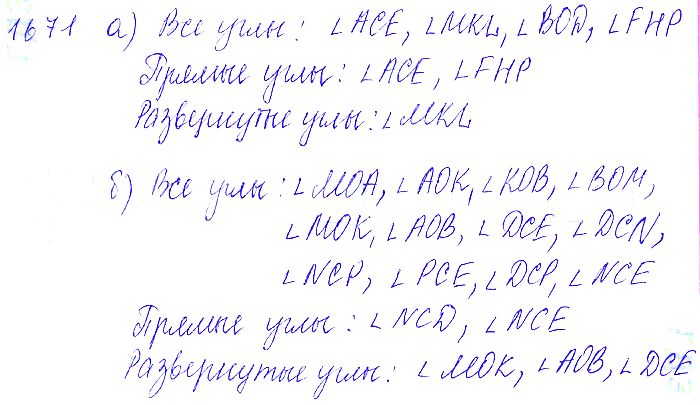 1671 а) Все углы: ∠ACE, ∠MKL, ∠BOD, ∠FHP
Прямые углы: ∠ACE, ∠FHP
Развернутые углы: ∠MKL
б) Все углы: ∠MOA, ∠AOK, ∠KOB, ∠BOM,
∠MOK, ∠AOB, ∠DCE, ∠DCN,
∠NCP, ∠PCE, ∠DCP, ∠NCE
Прямые углы: ∠NCD, ∠NCE
Развернутые углы: ∠MOK, ∠AOB, ∠DCE